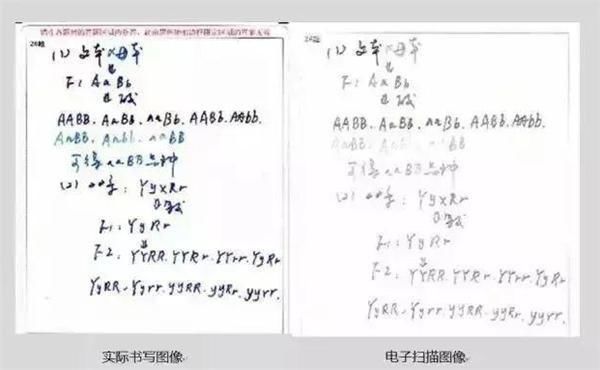 请在各题目的答题区域内作答,超出黑色矩形边框限定区域的答案无效
(1) 父本×母本
↓
F1 AaBb
↓
AABB、AaBB、aaBb、AABb、AAbb、
AaBB、Aabb、aaBB
可得aaBB品种
(2) : YyxRr
F1: YyRr
F2、YYRR.YYRr.YYrr.YyRr
YyRR、Yyrr.yyRR.yyRr.yyrr.
实际书写图像
(1) 父本×母本
↓
F1 AaBb
↓
AABB、AaBB、aaBb、AABb、AAbb、
可得aaBB品种
(2) : YyxRr
F1: YyRr
F2、YYRR.YYRr.YYrr.YyRr
YyRR、Yyrr.yyRR.yyRr.yyrr.
电子扫描图像